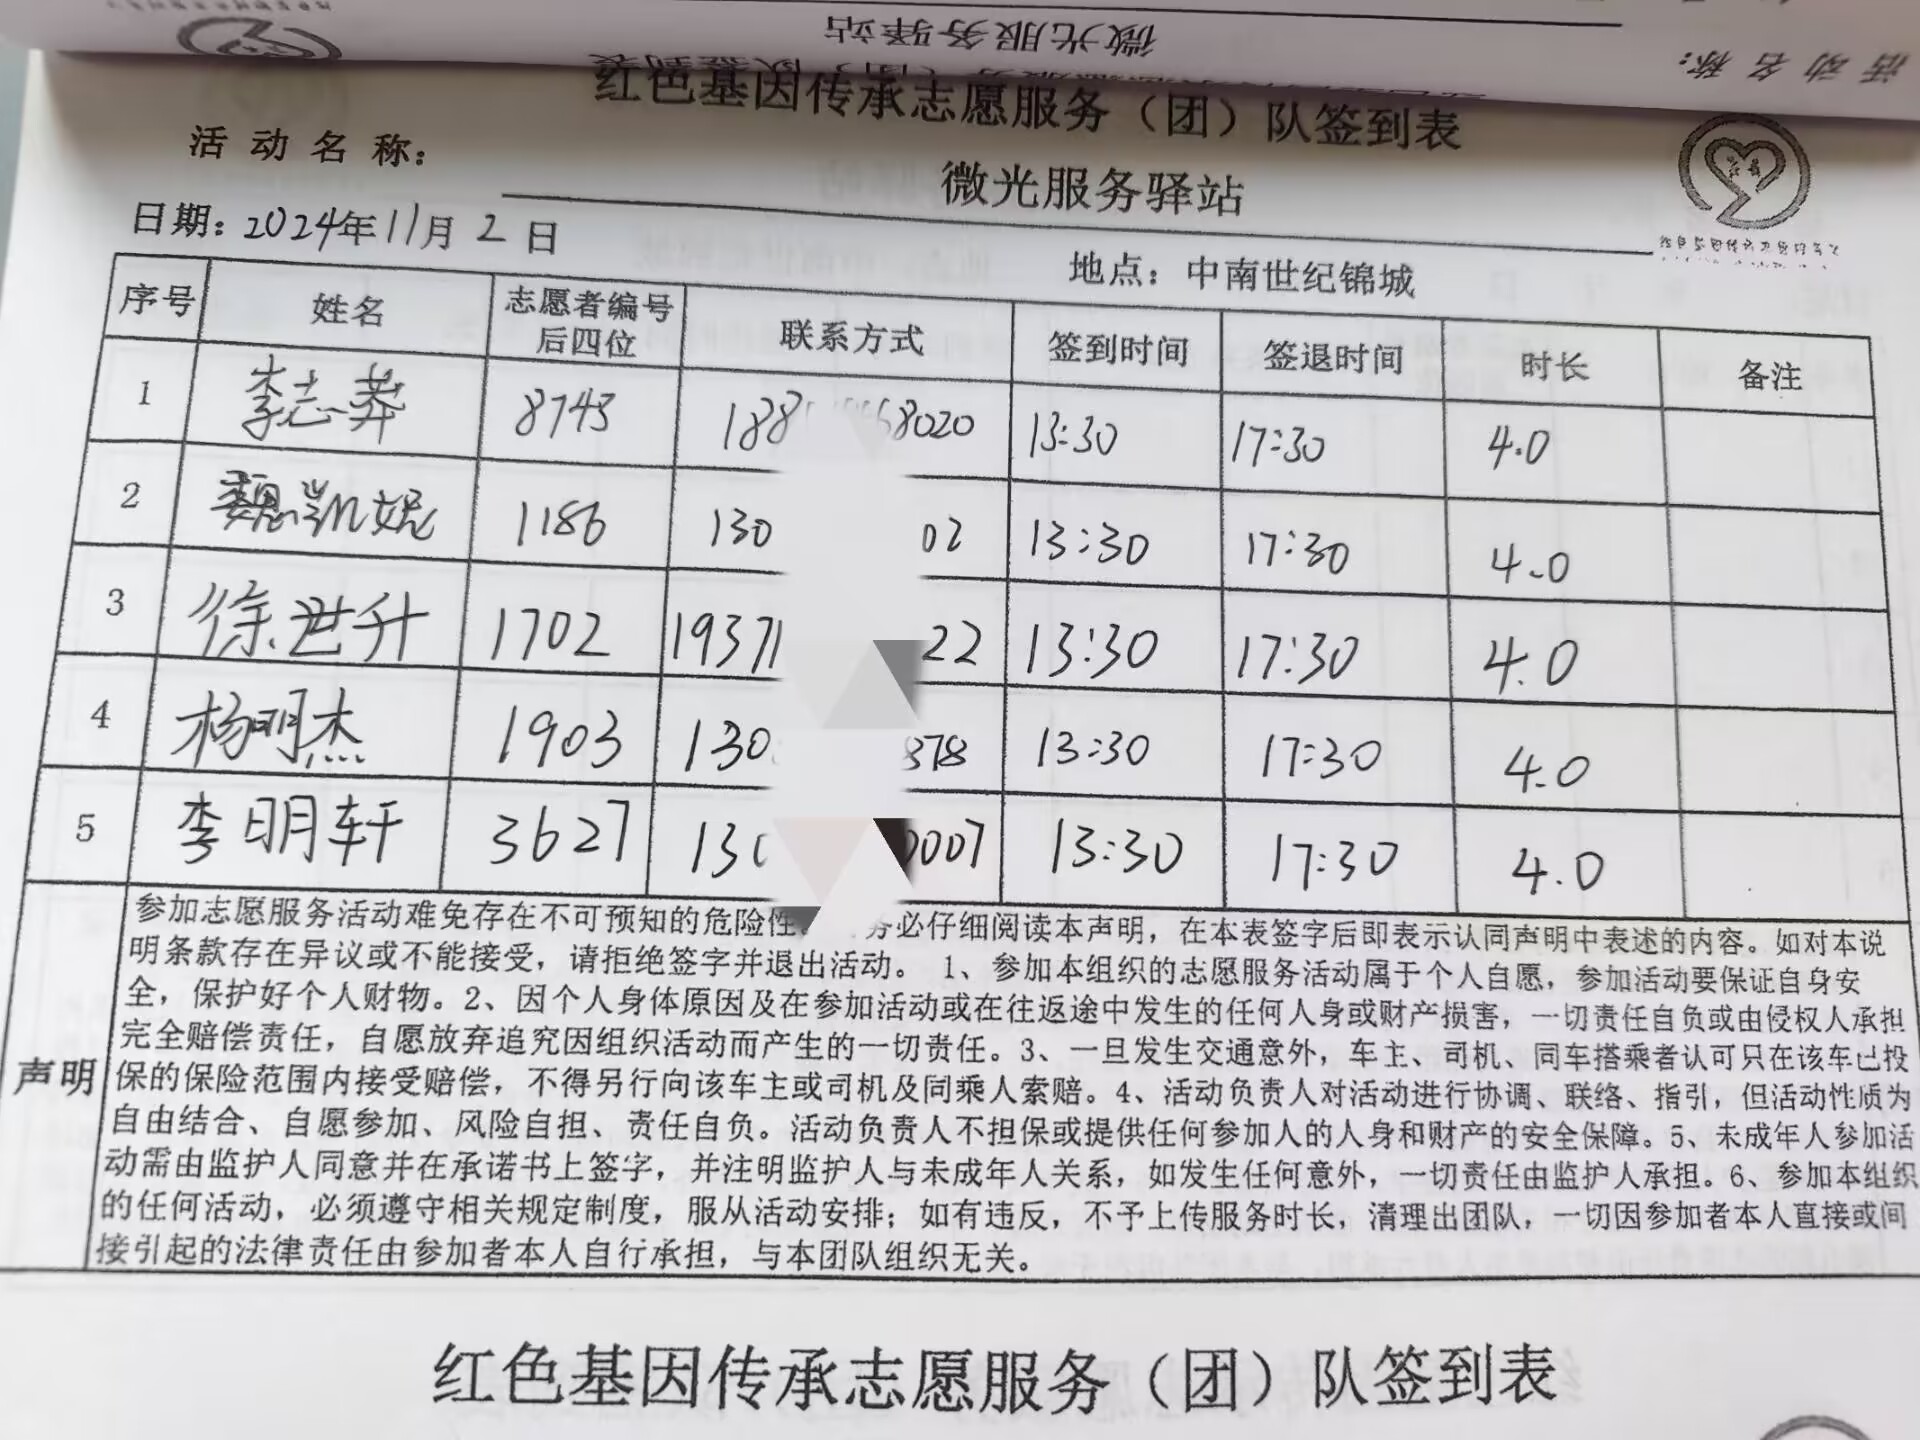 微光服务驿站
活动名称:
红色基因传承志愿服务（团）队签到表
活动名称:
微光服务驿站
日期: 2024年11月2日
地点: 中南世纪锦城
序号 姓名 志愿者编号后四位 联系方式 签到时间 签退时间 时长 备注
1 李志莽 8743 188 8020 13:30 17:30 4.0
2 魏凯妮 1186 130 02 13:30 17:30 4.0
3 徐世升 1702 19371 22 13:30 17:30 4.0
4 杨明杰 1903 130 878 13:30 17:30 4.0
5 李明轩 3627 130 0007 13:30 17:30 4.0
声明
参加志愿服务活动难免存在不可预知的危险性。 务必仔细阅读本声明，在本表签字后即表示认同声明中表述的内容。如对本说
明条款存在异议或不能接受，请拒绝签字并退出活动。 1、参加本组织的志愿服务活动属于个人自愿，参加活动要保证自身安
全，保护好个人财物。2、因个人身体原因及在参加活动或在往返途中发生的任何人身或财产损害，一切责任自负或由侵权人承担
完全赔偿责任，自愿放弃追究因组织活动而产生的一切责任。3、一旦发生交通意外，车主、司机、同车搭乘者认可只在该车已投
保的保险范围内接受赔偿，不得另行向该车主或司机及同乘人索赔。4、活动负责人对活动进行协调、联络、指引，但活动性质为
自由结合、自愿参加、风险自担、责任自负。活动负责人不担保或提供任何参加人的人身和财产的安全保障。5、未成年人参加活
动需由监护人同意并在承诺书上签字，并注明监护人与未成年人关系，如发生任何意外，一切责任由监护人承担。6、参加本组织
的任何活动，必须遵守相关规定制度，服从活动安排；如有违反，不予上传服务时长，清理出团队，一切因参加者本人直接或间
接引起的法律责任由参加者本人自行承担，与本团队组织无关。
红色基因传承志愿服务（团）队签到表